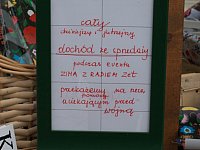 cały
dzisiejszy i jutrzejszy
dochód ze sprzedaży
podczas eventu
ZIMA Z RADIEM ZET
przekażemy na rzecz
pomocy
uciekającym przed
wojną